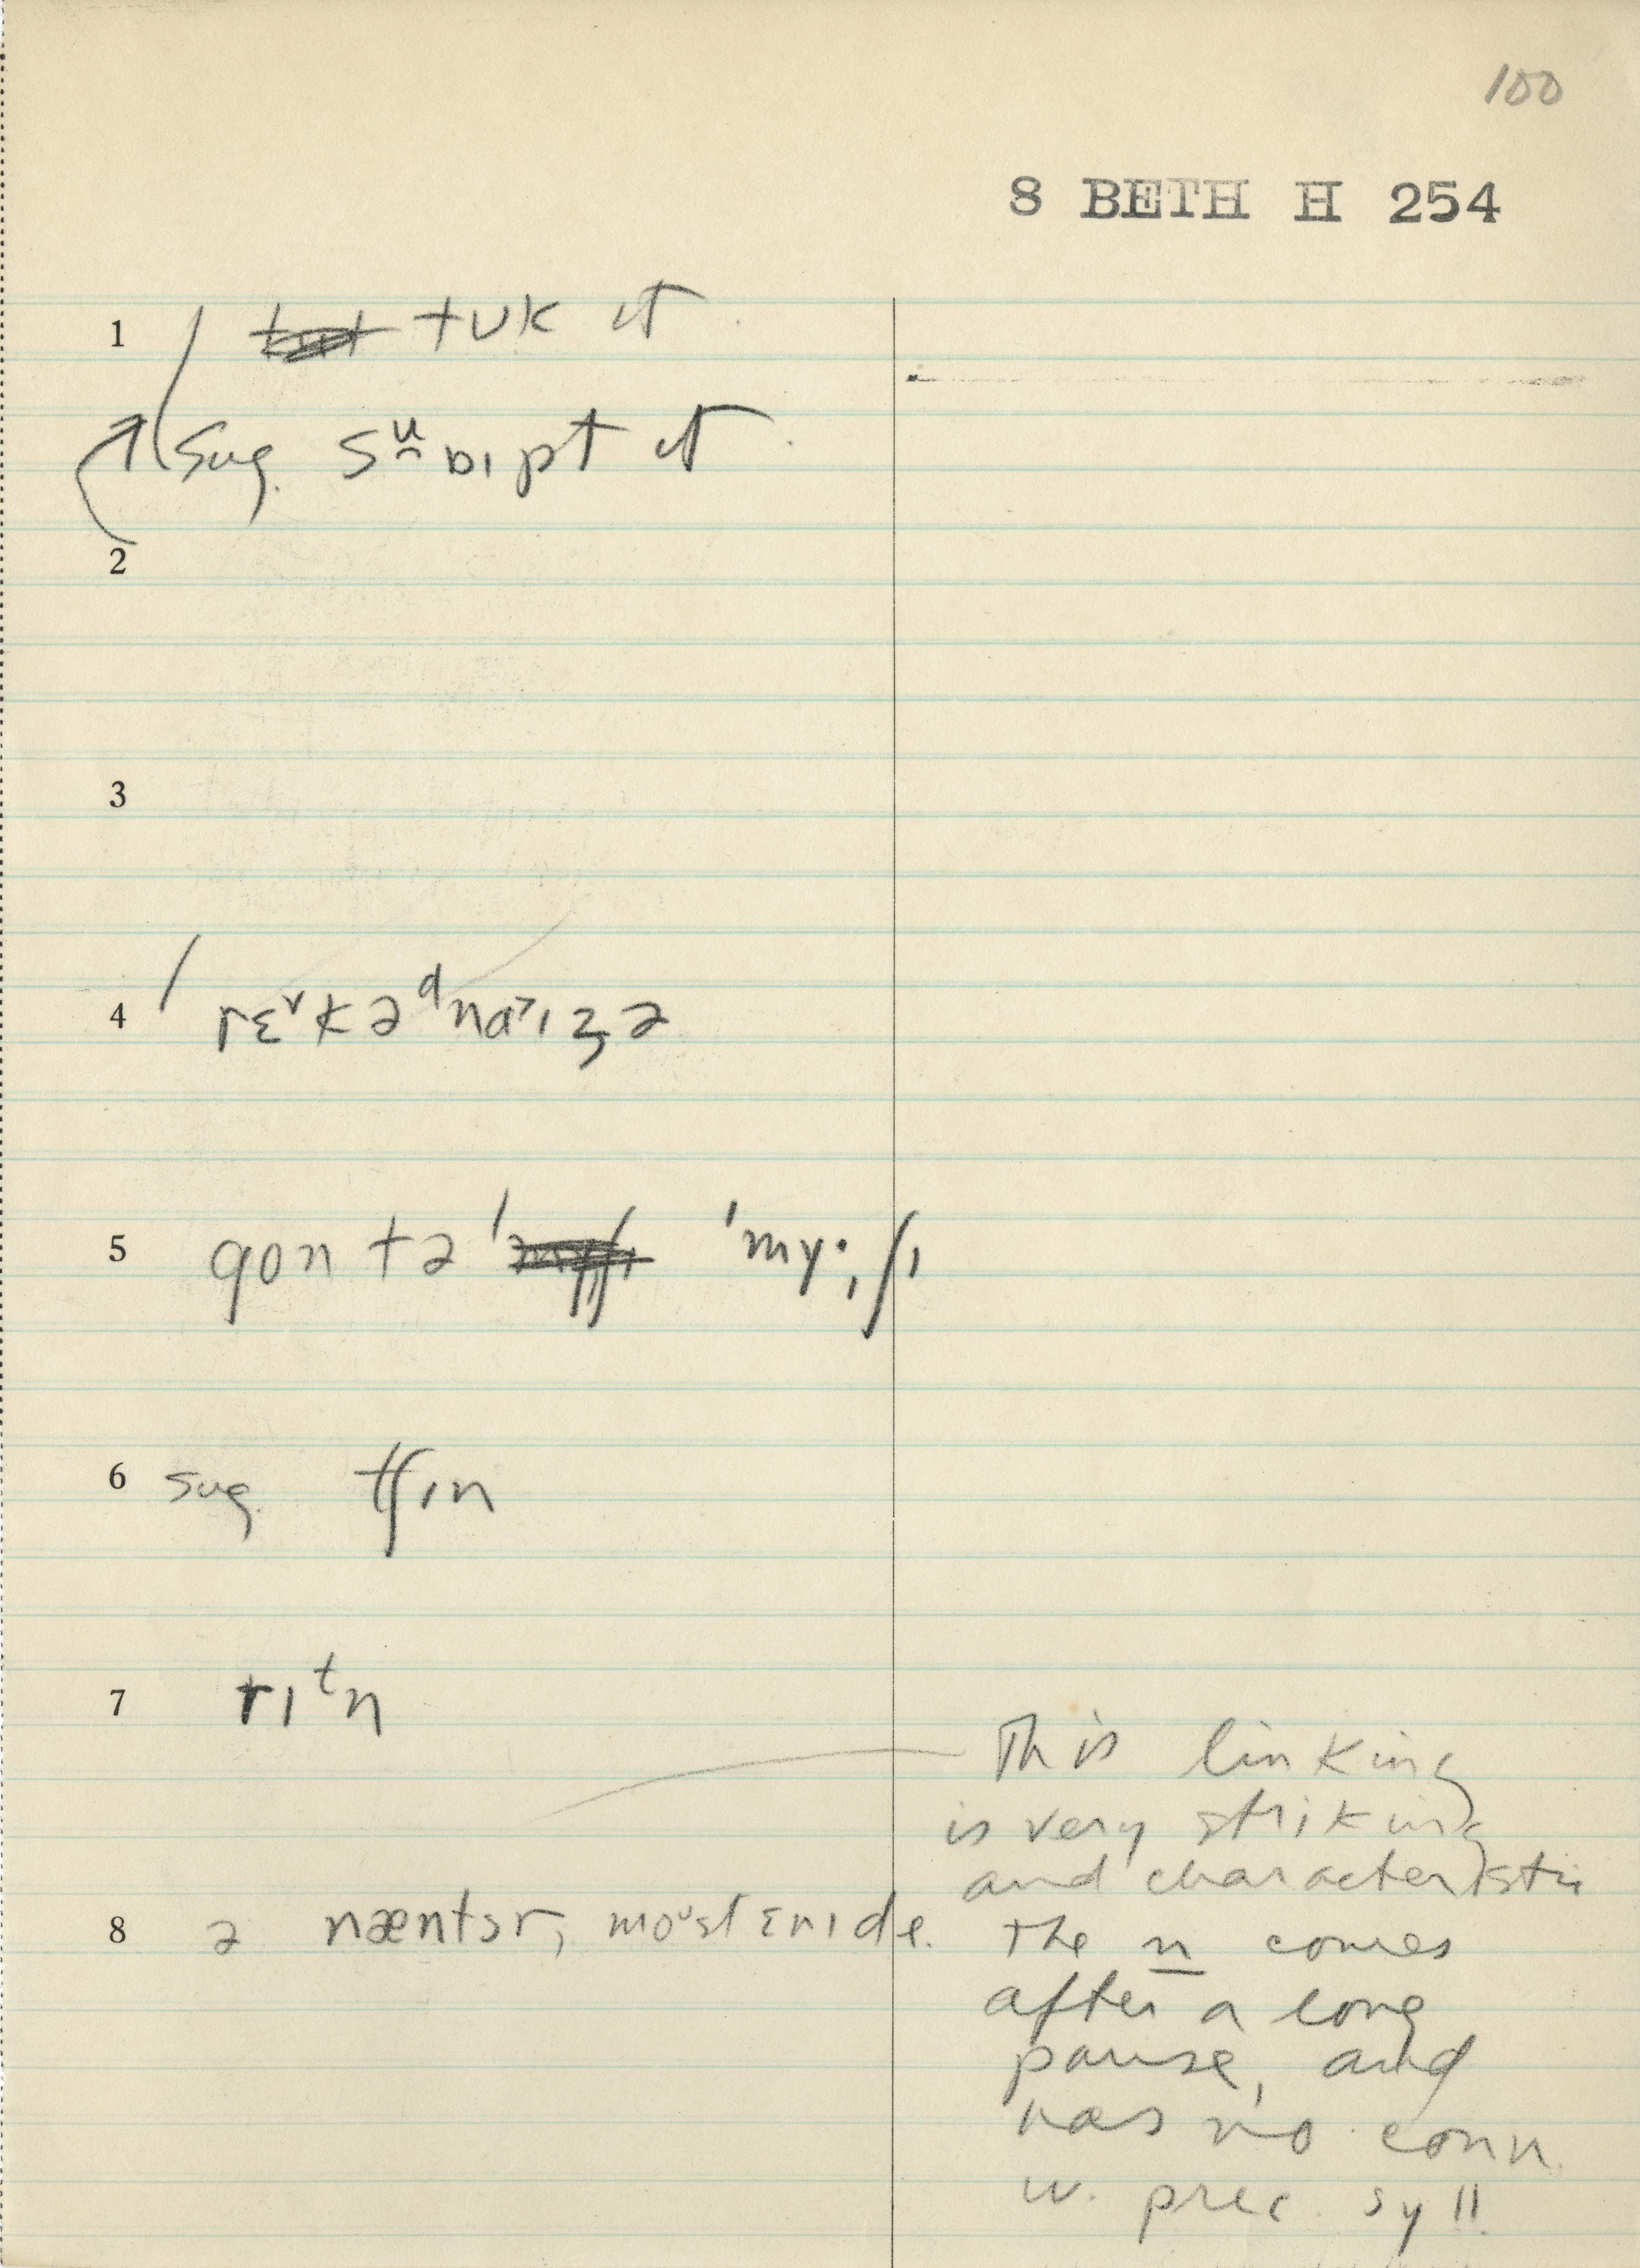 100
8 BETH H 254
1 tʊk ɪt
sug. swipt ɪt
2
3
4 rɛˇkəᵈnaɪzə
5 gon tə ˈmyˑɪʃɪ
6 sug. tʃɪn
7 rɪᵗn
This linking
is very striking
and characteristic
8 ə næntsɜr, moᵘstɛnɪde. The n comes
after a long
pause, and
has no conn.
w. prec. syll.